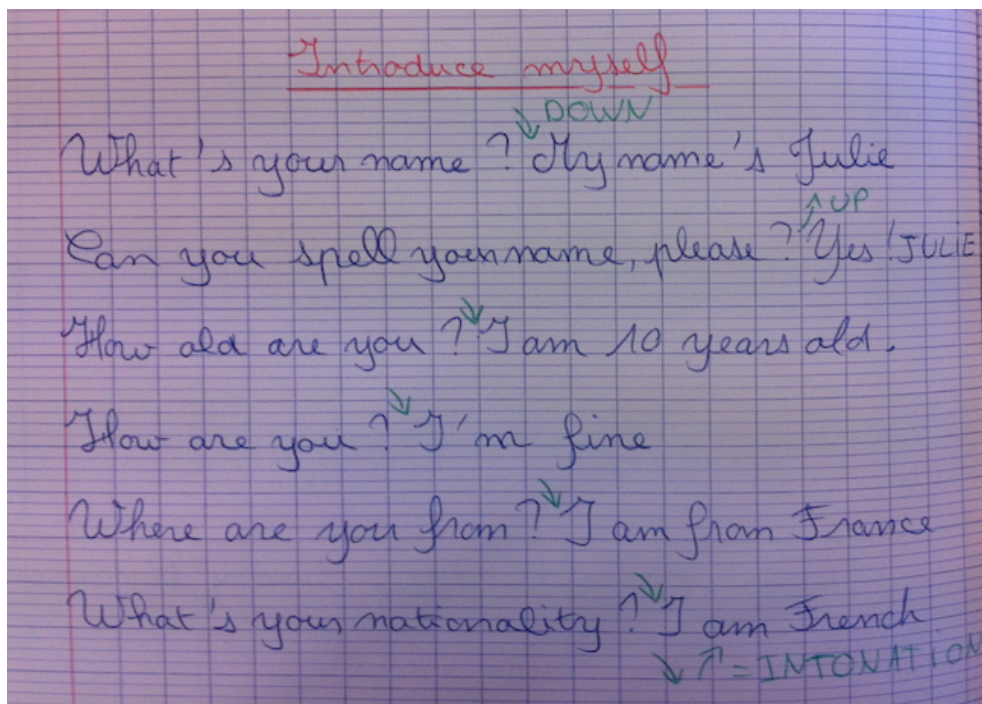 Introduce myself
↓ DOWN
What's your name ? My name's Julie
↑ UP
Can you spell your name, please ? Yes ! JULIE
↓
How old are you ? I am 10 years old.
↓
How are you ? I'm fine
↓
Where are you from ? I am from France
↓
What's your nationality ? I am French
↓ ↑ = INTONATION